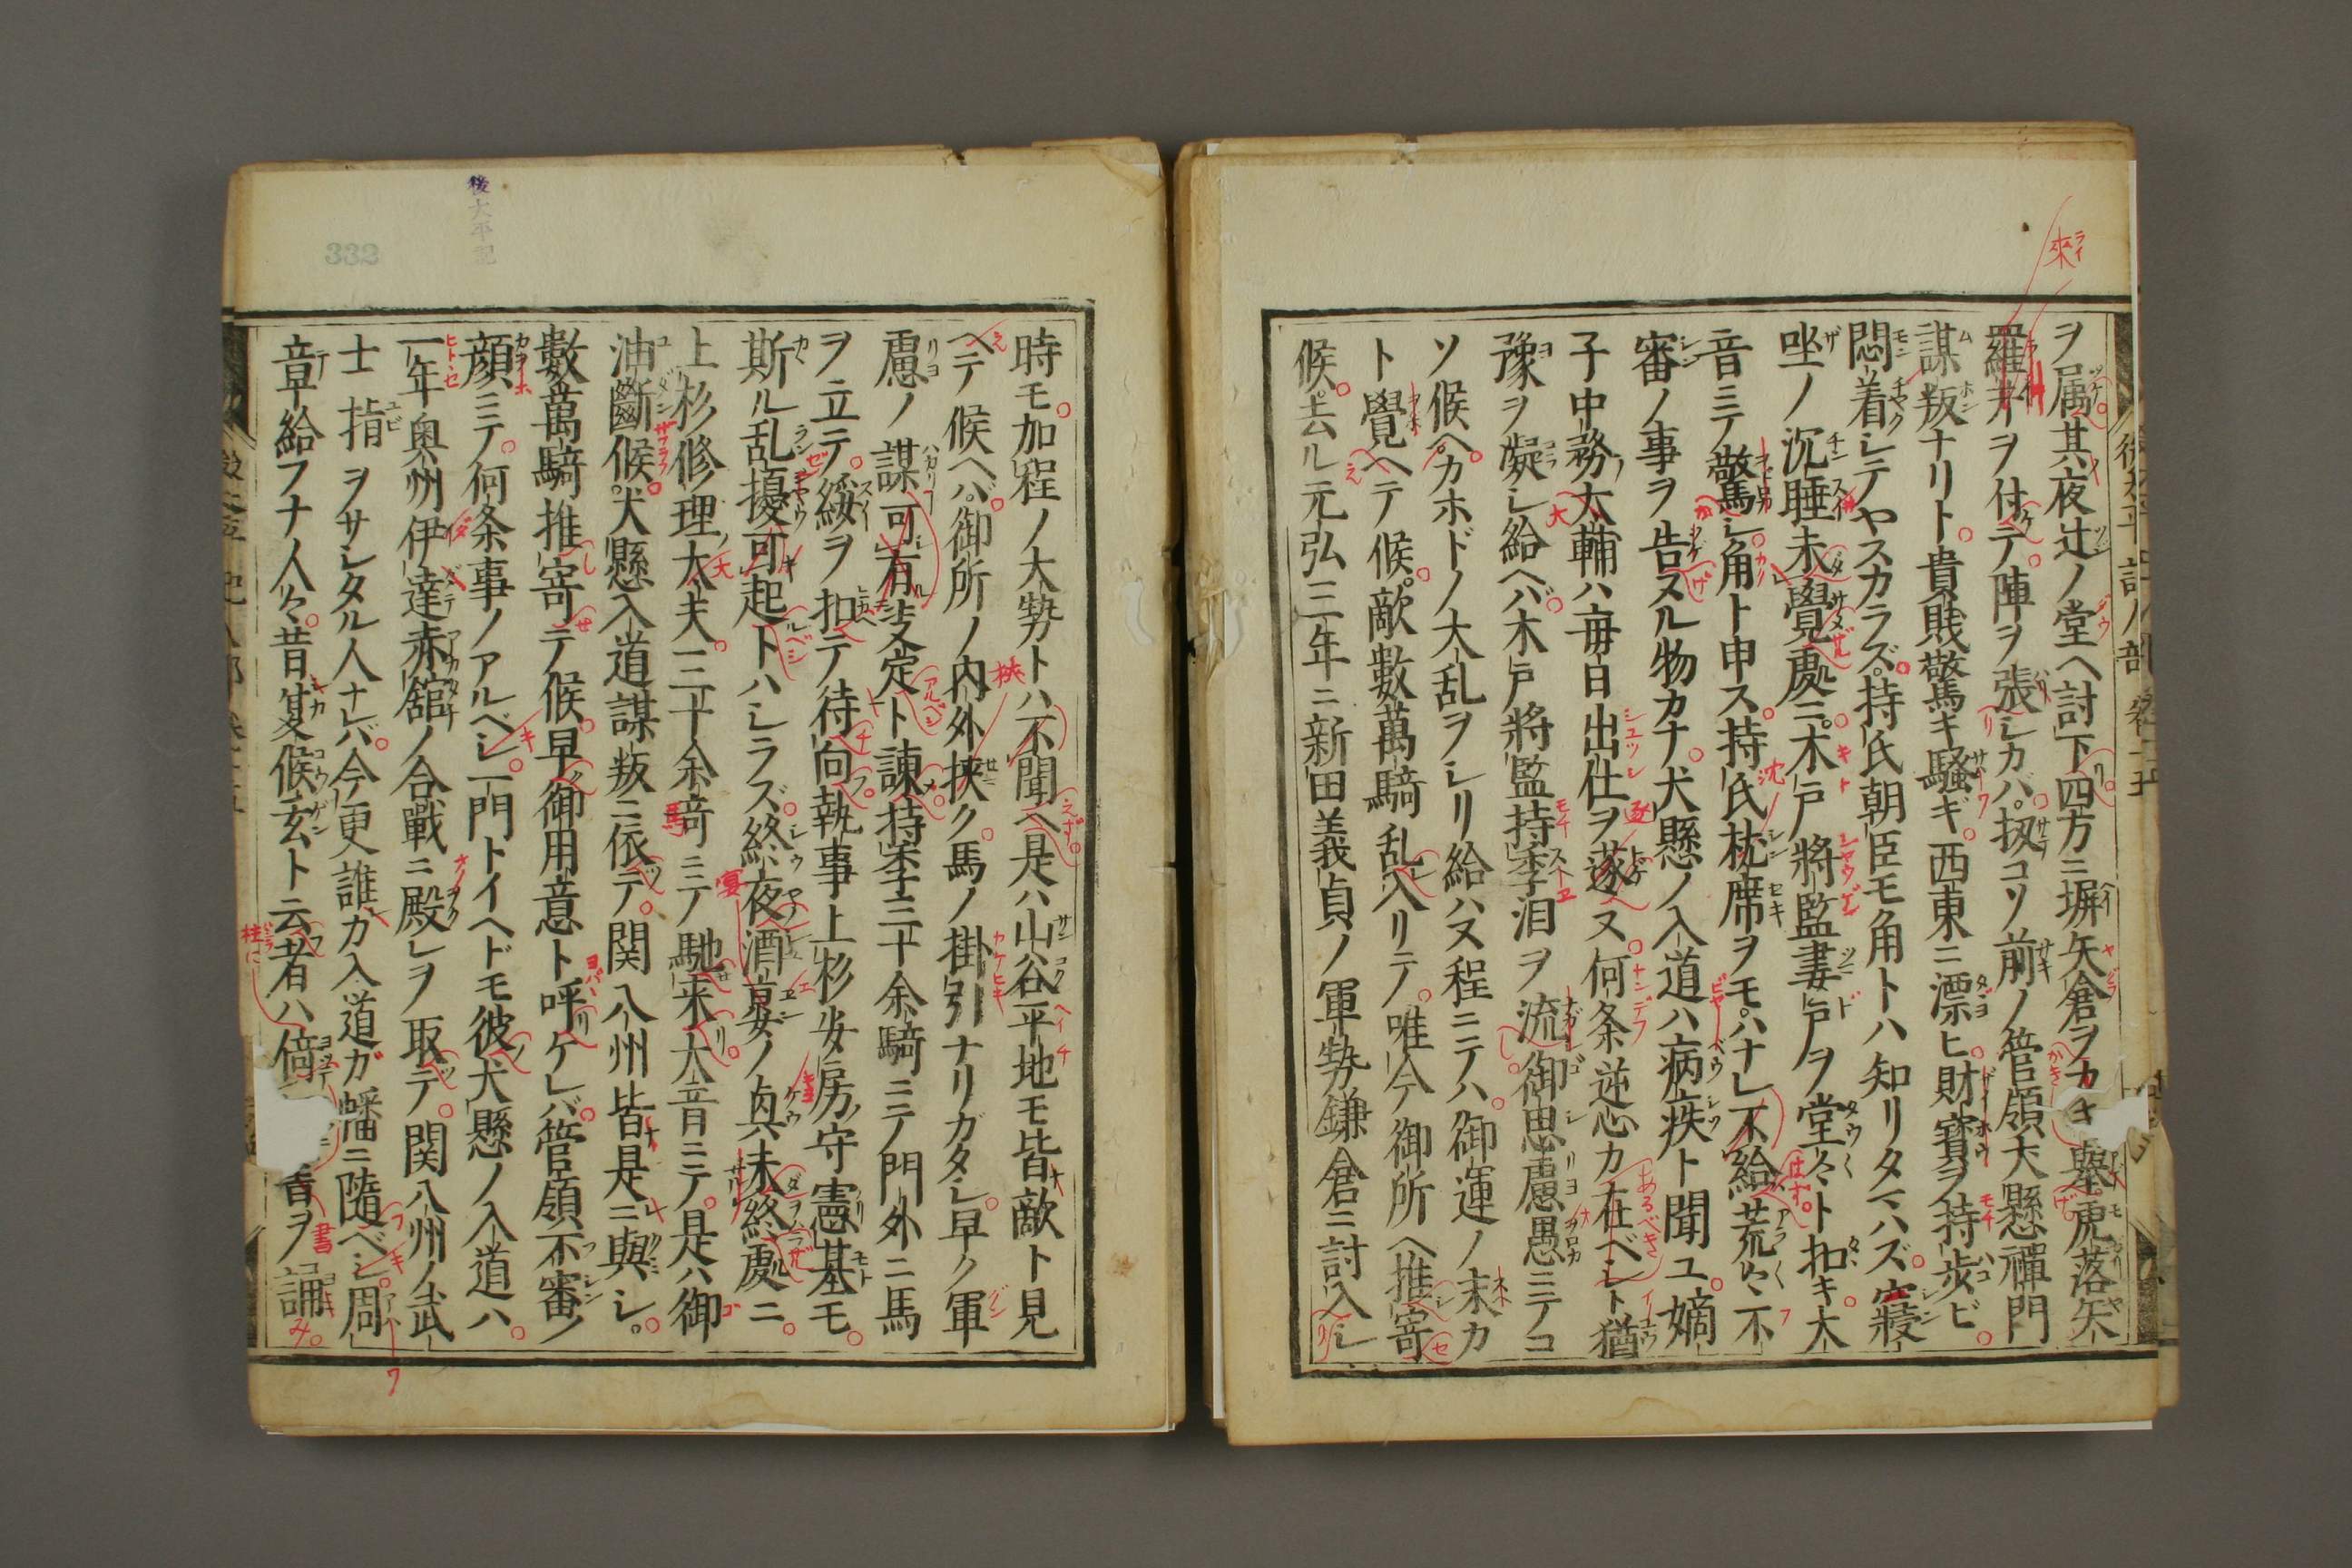 ヲ属其夜辻ノ堂ヘ討下四方ニ塀矢倉ヲカキ擧虎落矢
羅井ヲ付テ陣ヲ張シカバ扨コソ前ノ管領犬懸禪門
謀叛ナリト貴賎驚キ騒ギ西東ニ漂ヒ財寳ヲ持歩ビ
悶着シテヤスカラズ持氏朝臣モ角トハ知リタマハズ寢
坐ノ沉睡未覺處ニ木戸將監妻戸ヲ堂々ト扣キ大
音ニテ驚シ角ト申ス持氏枕席ヲモハナレ不給荒々不
審ノ事ヲ告ヌル物カナ犬懸ノ入道ハ病疾ト聞ユ嫡
子中務大輔ハ毎日出仕ヲ遂ヌ何条逆心カ在ベシト猶
豫ヲ凝シ給ヘバ木戸將監持季泪ヲ流御思慮愚ニテコ
ソ候ヘカホドノ大乱ヲシリ給ハヌ程ニテハ御運ノ末カ
ト覺ヘテ候敵數萬騎乱入リテ唯今御所ヘ推寄
候去ル元弘三年ニ新田義貞ノ軍勢鎌倉ニ討入シ
時モ加程ノ大勢トハ不聞ヘ是ハ山谷平地モ皆敵ト見
ヘテ候ヘバ御所ノ内外挾ク馬ノ掛引ナリガタシ早ク軍
慮ノ謀可有支定ト諌持季三十余騎ニテ門外ニ馬
ヲ立テ綏ヲ扣テ待向執事上杉安房守憲基モ
斯ル乱擾可起トハシラズ終夜酒宴ノ真未終處ニ
上杉修理大夫三十余騎ニテ馳来大音ニテ是ハ御
油斷候犬懸入道謀叛ニ依テ関八州皆是ニ與シ
數萬騎推寄テ候早御用意ト呼ケレバ管領不審ノ
顔ニテ何条事ノアルベシ一門トイヘドモ彼犬懸ノ入道ハ
一年奥州伊達赤舘ノ合戰ニ殿レヲ取テ関八州ノ武
士指ヲサレタル人ナレバ今更誰カ入道ガ幡ニ隨ベシ周
章給フナ人々昔夏候玄ト云者ハ倚
書ヲ誦
後太平記
332